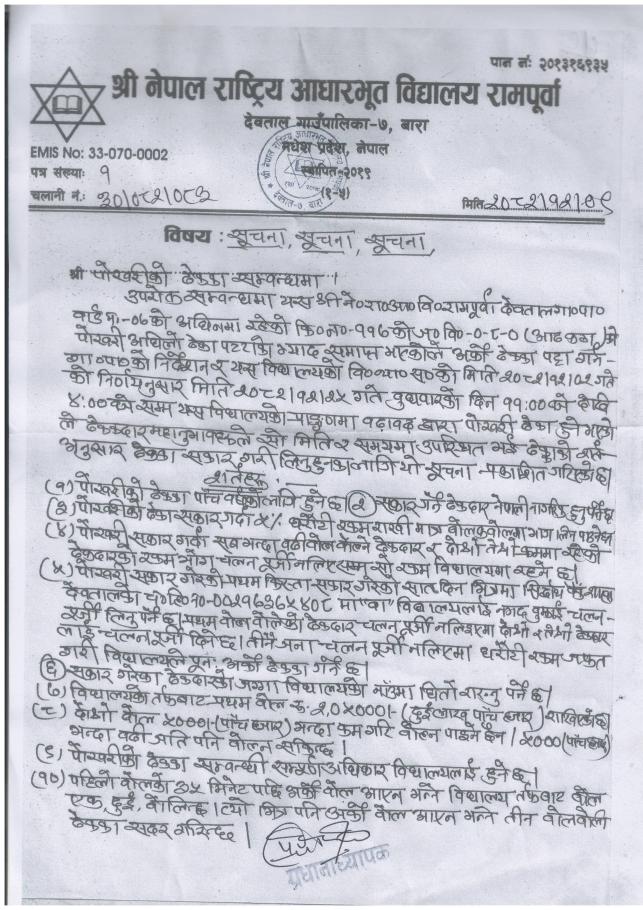 पान नं: २०१३१६९३५
श्री नेपाल राष्ट्रिय आधारभूत विद्यालय रामपूर्वा
देवताल गाउँपालिका-७, बारा
मधेश प्रदेश, नेपाल
EMIS No: 33-070-0002
स्थापित-२०१९
पत्र संख्या: १
(१-५)
चलानी नं.: ३०/०८२/०८३
मिति २०८२/१२/०९
विषय : सूचना, सूचना, सूचना,
श्री पोखरीको ठेक्का सम्वन्धमा ।
उपरोक्त सम्वन्धमा यस श्री ने०रा०आ०वि०रामपूर्वा देवताल गा०पा०
वार्ड नं:-०७को अधिनमा रहेको कि०न०-११६को ज० वि०-०-८-० (आठ कठ्ठा)को
पोखरी अघिल्लो ठेक्का पट्टाको म्याद समाप्त भएकोले अर्को ठेक्का पट्टा गर्न
गा०पा०को निर्देशन र यस विद्यालयको वि०व्य०स०को मिति २०८२/१२/०८ गते
को निर्णयनुसार मिति २०८२/१२/२५ गते वुधवारको दिन ११:००वजे देखि
४:००वजे सम्म यस विद्यालयको प्राङ्गणमा वढावढ द्वारा पोखरी ठेक्का हुने भएको
ले ठेक्केदार महानुभावहरूले सो मिति र समयमा उपस्थित भई ठेक्काको शर्त
अनुसार ठेक्का सकार गरी लिनुहुनका लागि यो सूचना प्रकाशित गरिएको छ।
शर्तहरू
(१) पोखरीको ठेक्का पाँच वर्षको लागि हुनेछ। (२) सकार गर्ने ठेक्दार नेपाली नागरिक हुनु पर्नेछ
(३) पोखरीको ठेक्का सकार गर्दा ५% धरौटी रकम राखी मात्र वोलकवोलमा भाग लिन पाउनेछ
(४) पोखरी सकार गर्दा सव भन्दा वढी वोल वोल्ने ठेक्दार र दोश्रो तेश्रो क्रममा रहेको
ठेक्दारको रकम चलान पूर्जी नलिएसम्म सो रकम विद्यालयमा रहने छ।
(५) पोखरी सकार गरेको प्रथम किस्ता सकार गरेको सात दिन भित्रमा सिद्धार्थ वैंक शाखा
देवतालका मा "वा" विद्यालयलाई नगद वुझाई चलन-
पूर्जी लिनु पर्ने छ। प्रथम वोल वोलेको ठेक्दार चलन पूर्जी नलिएमा दोश्रो र तेश्रो ठेक्दार
लाई चलन पूर्जी दिनेछ। तीनै जना चलन पूर्जी नलिएमा धरौटी रकम जफत
गरी विद्यालयले पून: अर्को ठेक्का गर्ने छ।
(६) सकार गरेका ठेक्दारको जग्गा विद्यालयको नाँउमा धितो राख्नु पर्ने छ।
(७) विद्यालयको तर्फबाट प्रथम वोल रू २,०५०००।- (दुई लाख पाँच हजार) राखिएको छ।
(८) दोश्रो वोल ५०००।-(पाँच हजार) भन्दा कम गरि वोल्न पाइने छैन। ५०००(पाँच हजार)
भन्दा वढी जति पनि वोल्न सकिन्छ।
(९) पोखरीको ठेक्का सम्वन्धी सम्पूर्ण अधिकार विद्यालयलाई हुने छ।
(१०) पहिलो वोलको ३५ मिनेट पछि अर्को वोल आएन भन्ने विद्यालय तर्फबाट वोल
एक, दुई वोलिन्छ। त्यो भित्र पनि अर्को वोल आएन भन्ने तीन वोलवोली
ठेक्का सदर गरिन्छ।
प्रधानाध्यापक